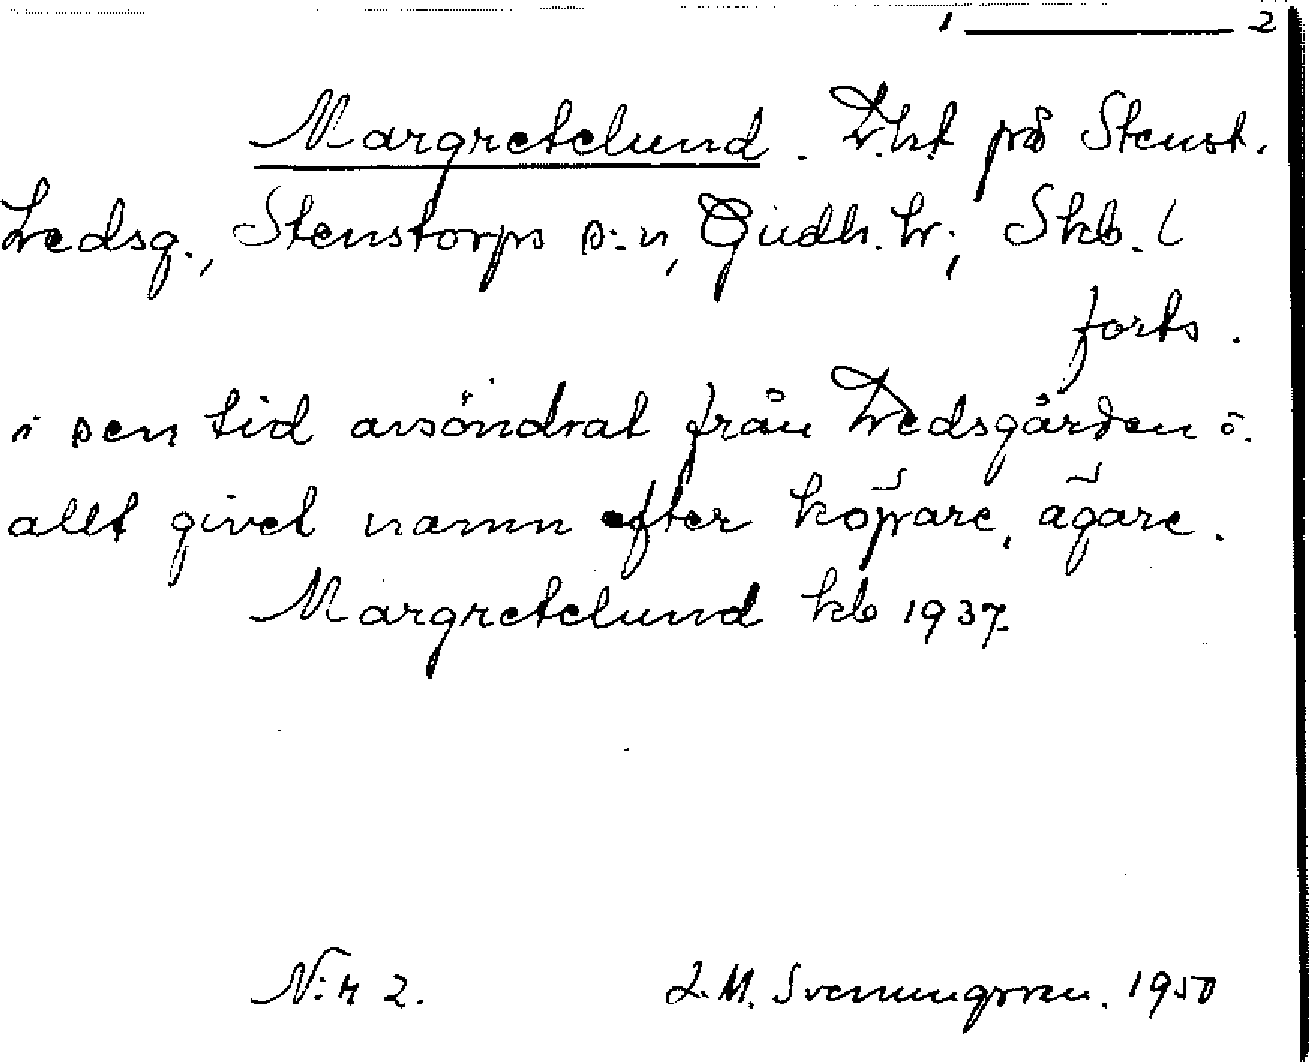 1 ——— 2
Margretelund. Lht på Stenst.
Ledsg., Stenstorps s:n, Gudh. hr; Skb. l
forts.
i sen tid avsöndrat från Ledsgården o.
allt givet namn efter köpare, ägare.
Margretelund kb 1937.
N:r 2. L.M. Svenungsson. 1950